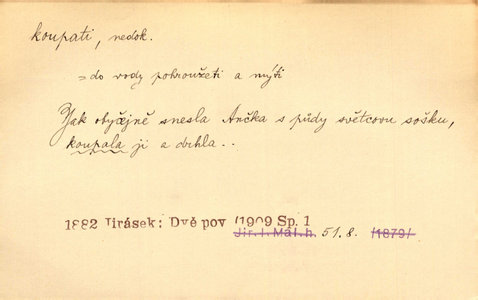 koupati, nedok.
= do vody pohroužeti a mýti
Jak obyčejně snesla Ančka s půdy světcovu sošku,
koupala ji a drhla..
1882 Jirásek: Dvě pov /1909 Sp. 1
Jir. I. Mal. h. 51.8. /1879/